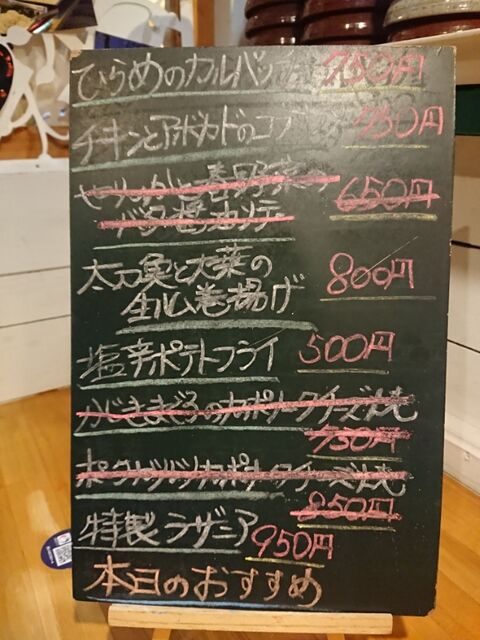 ひらめのカルパッ 750円
チキンとアボカドのコブ 750円
春野菜
バタ醤 650円
太刀魚と大葉の
生ハム巻揚げ 800円
塩辛ポテトフライ 500円
かじきまぐろのカポナータチーズ
750円
カポナータチーズ
850円
特製ラザニア 950円
本日のおすすめ